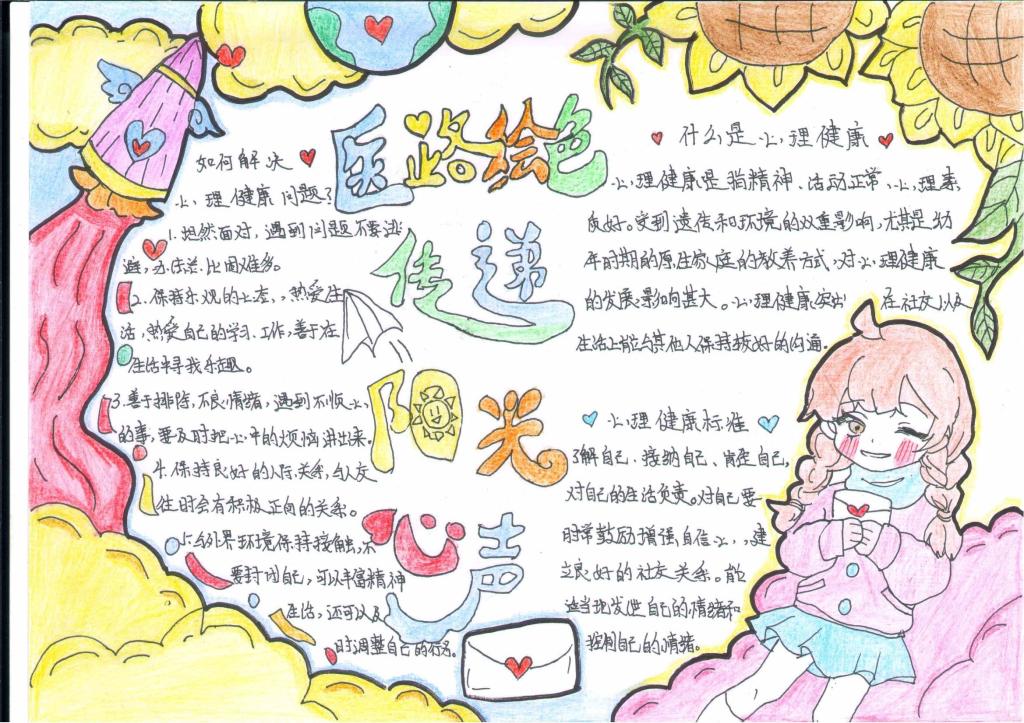 医路绘色
传递
阳光
心声
如何解决
心理健康问题?
1.坦然面对,遇到问题不要逃
避,办法总比困难多。
2.保持乐观的心态,热爱生
活,热爱自己的学习、工作,善于在
生活中寻找乐趣。
3.善于排除不良情绪,遇到不顺心
的事,要及时把心中的烦恼讲出来。
4.保持良好的人际关系,与人交
往时会有积极正向的关系。
5.与外界环境保持接触,不
要封闭自己,可以丰富精神
生活,还可以及
时调整自己的行为。
什么是心理健康
心理健康是指精神、活动正常、心理素
质好。受到遗传和环境的双重影响,尤其是幼
年时期的原生家庭的教养方式,对心理健康
的发展影响甚大。心理健康突出在社交以及
生活上能与其他人保持较好的沟通。
心理健康标准
了解自己、接纳自己、肯定自己,
对自己的生活负责。对自己要
时常鼓励增强自信心,建
立良好的社交关系。能
适当地发泄自己的情绪和
控制自己的情绪。